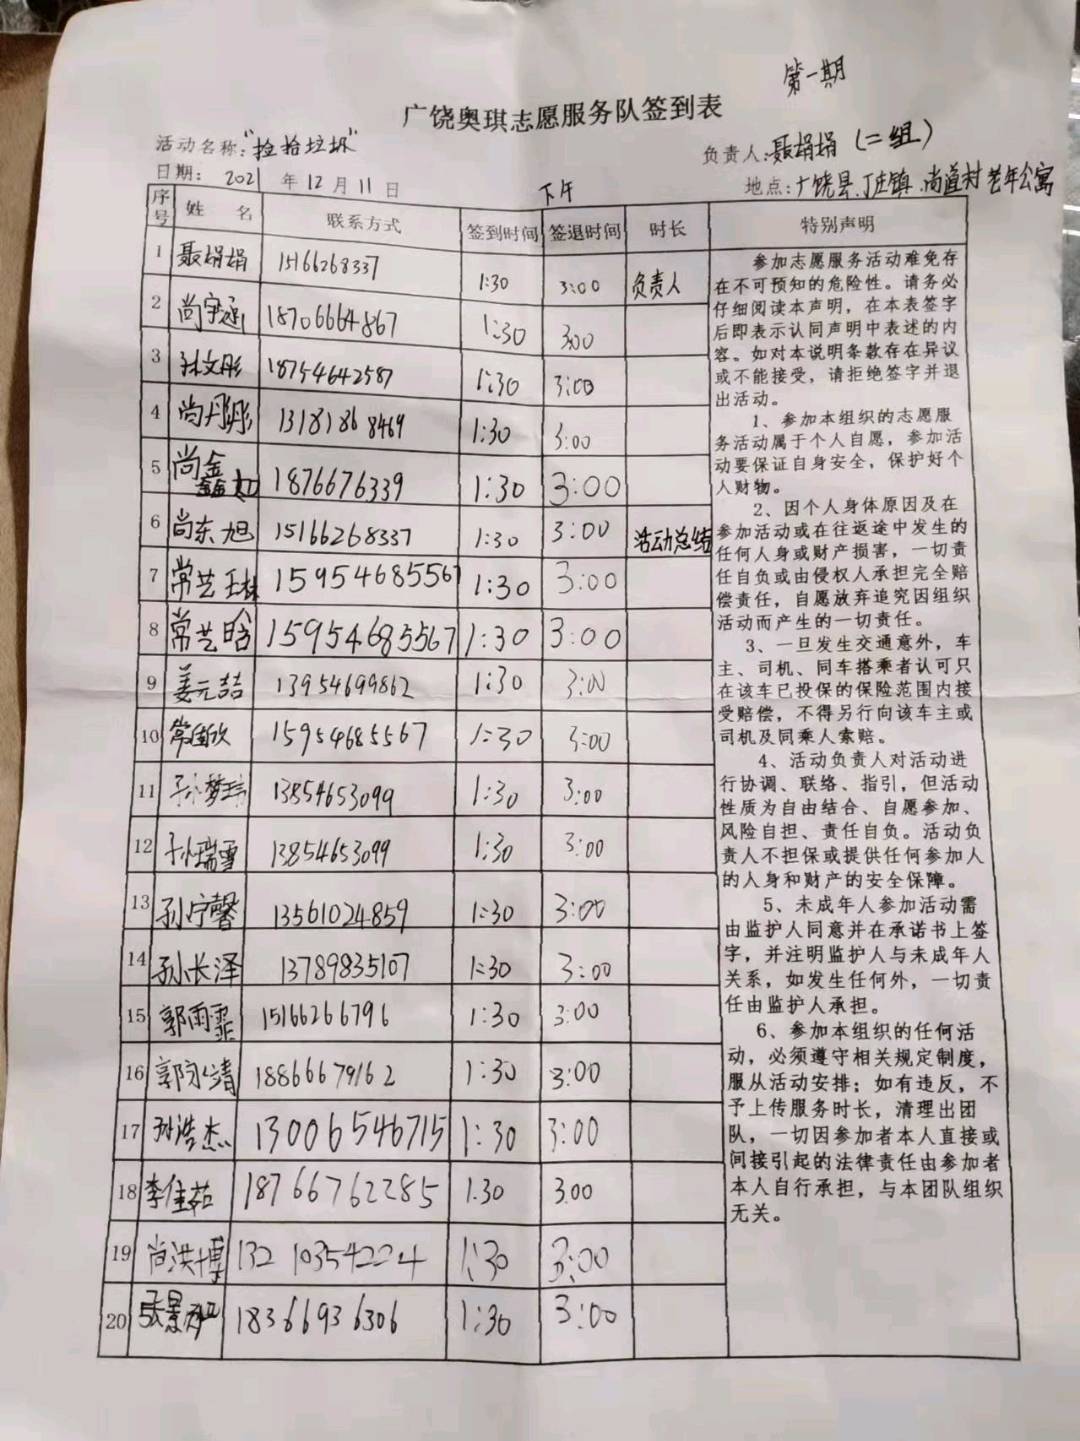 第一期
广饶奥琪志愿服务队签到表
活动名称："捡拾垃圾" 负责人：聂娟娟（二组）
日期： 2021 年 12 月 11 日 下午 地点：广饶县.丁庄镇.尚道村老年公寓
序号 姓 名 联系方式 签到时间 签退时间 时长 特别声明
1 聂娟娟 15166268337 1:30 3:00 负责人
2 尚宇 18706664867 1:30 3:00
3 孙文彤 18754642587 1:30 3:00
4 尚丹彤 13181868469 1:30 3:00
5 尚鑫如 1876676339 1:30 3:00
6 尚东旭 15166268337 1:30 3:00 活动总结
7 常艺珏 15954685567 1:30 3:00
8 常艺晗 15954685567 1:30 3:00
9 姜元喆 13954699862 1:30 3:00
10 常欣 15954685567 1:30 3:00
11 孙梦玮 13854653099 1:30 3:00
12 孙瑞雪 13854653099 1:30 3:00
13 孙宁馨 13561024859 1:30 3:00
14 孙长泽 13789835107 1:30 3:00
15 郭雨霏 15166266796 1:30 3:00
16 郭清 18866679162 1:30 3:00
17 孙浩杰 13006546715 1:30 3:00
18 李佳茹 18766762285 1.30 3.00
19 尚洪博 13210354224 1:30 3:00
20 张景 18366936306 1:30 3:00
参加志愿服务活动难免存
在不可预知的危险性。请务必
仔细阅读本声明，在本表签字
后即表示认同声明中表述的内
容。如对本说明条款存在异议
或不能接受，请拒绝签字并退
出活动。
1、参加本组织的志愿服
务活动属于个人自愿，参加活
动要保证自身安全，保护好个
人财物。
2、因个人身体原因及在
参加活动或在往返途中发生的
任何人身或财产损害，一切责
任自负或由侵权人承担完全赔
偿责任，自愿放弃追究因组织
活动而产生的一切责任。
3、一旦发生交通意外，车
主、司机、同车搭乘者认可只
在该车已投保的保险范围内接
受赔偿，不得另行向该车主或
司机及同乘人索赔。
4、活动负责人对活动进
行协调、联络、指引，但活动
性质为自由结合、自愿参加、
风险自担、责任自负。活动负
责人不担保或提供任何参加人
的人身和财产的安全保障。
5、未成年人参加活动需
由监护人同意并在承诺书上签
字，并注明监护人与未成年人
关系，如发生任何外，一切责
任由监护人承担。
6、参加本组织的任何活
动，必须遵守相关规定制度，
服从活动安排；如有违反，不
予上传服务时长，清理出团
队，一切因参加者本人直接或
间接引起的法律责任由参加者
本人自行承担，与本团队组织
无关。